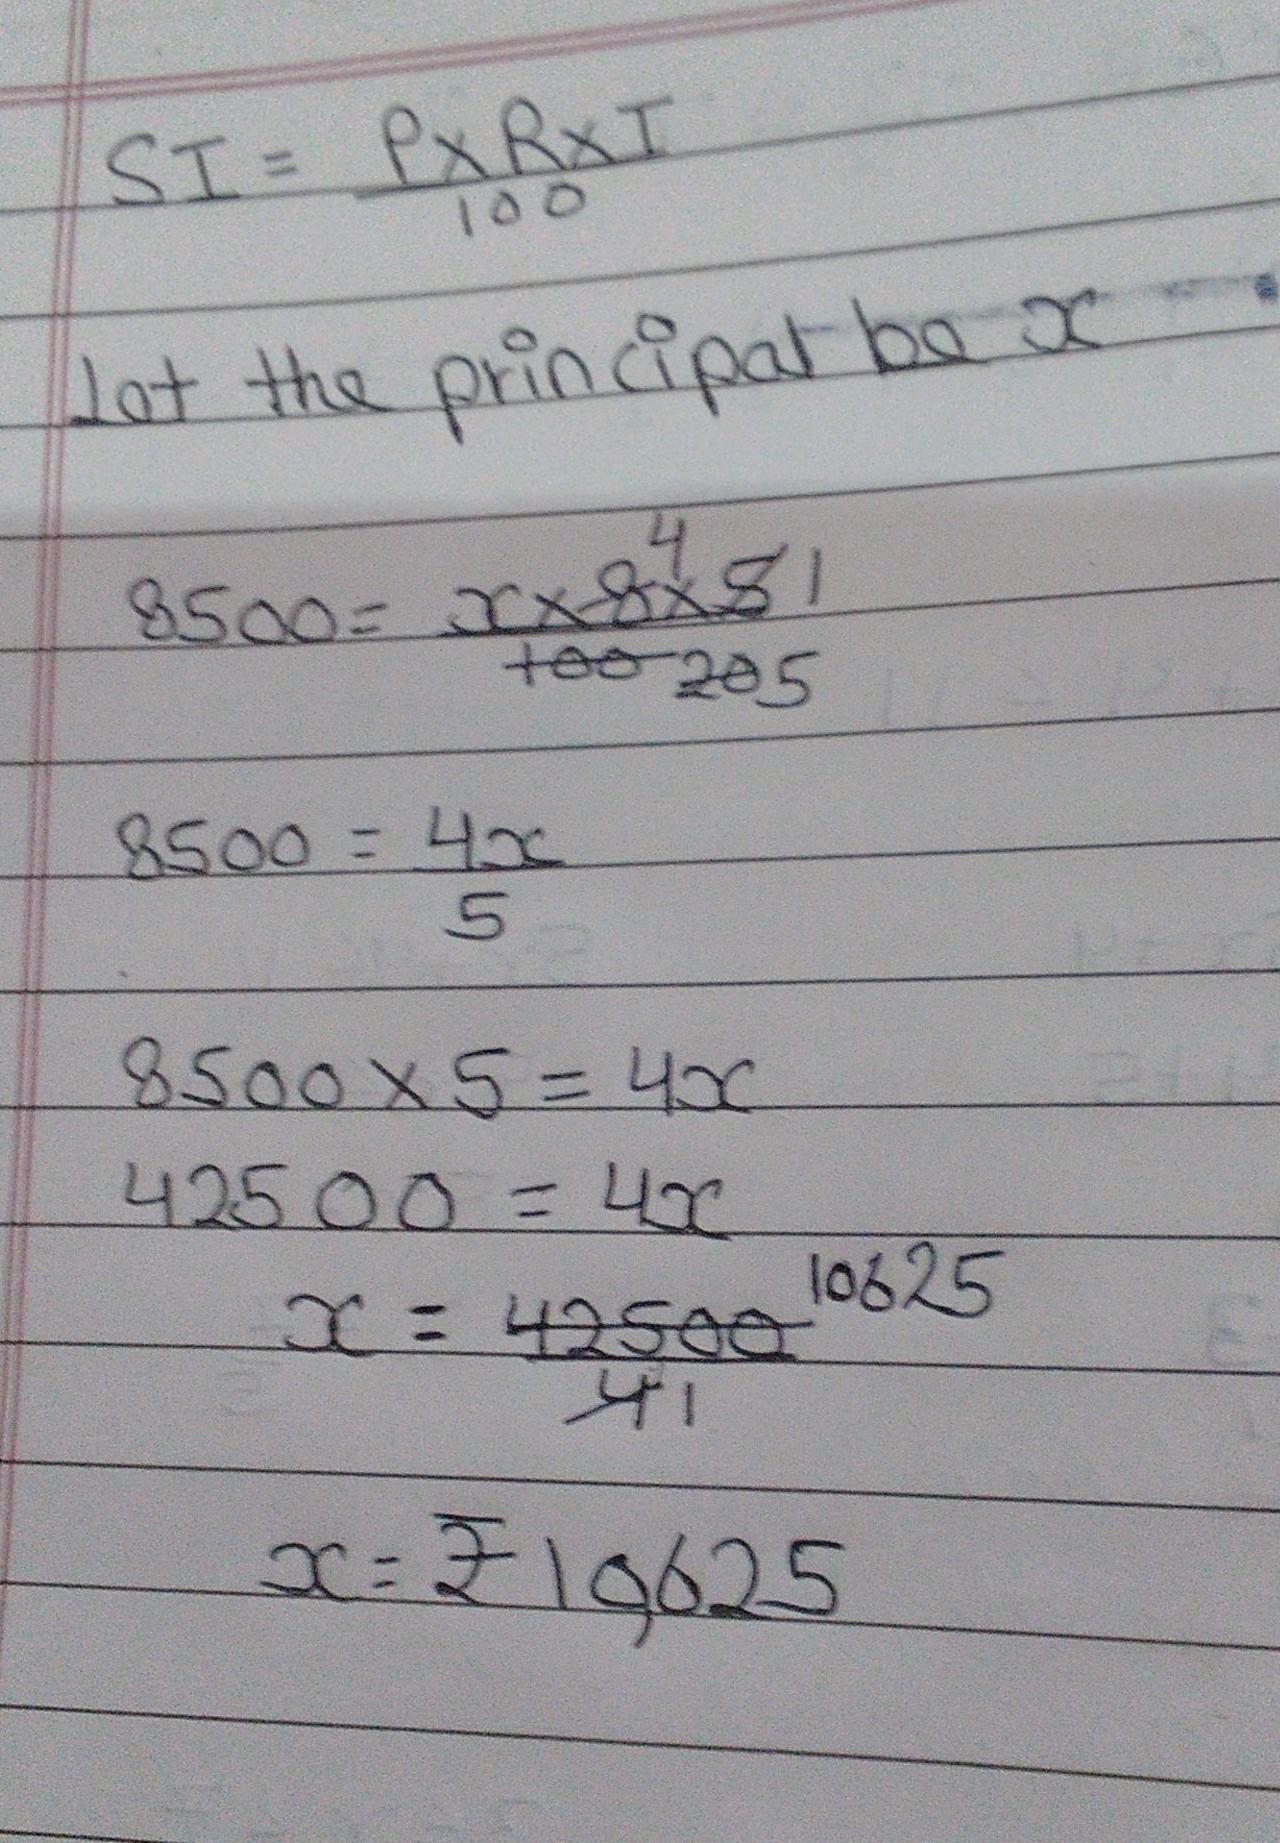 SI = P×R×I
100
Let the principal be x
4
8500 = x×8×5 1
100 20 5
8500 = 4x
5
8500×5 = 4x
42500 = 4x
x = 42500 10625
4 1
x = ₹10,625